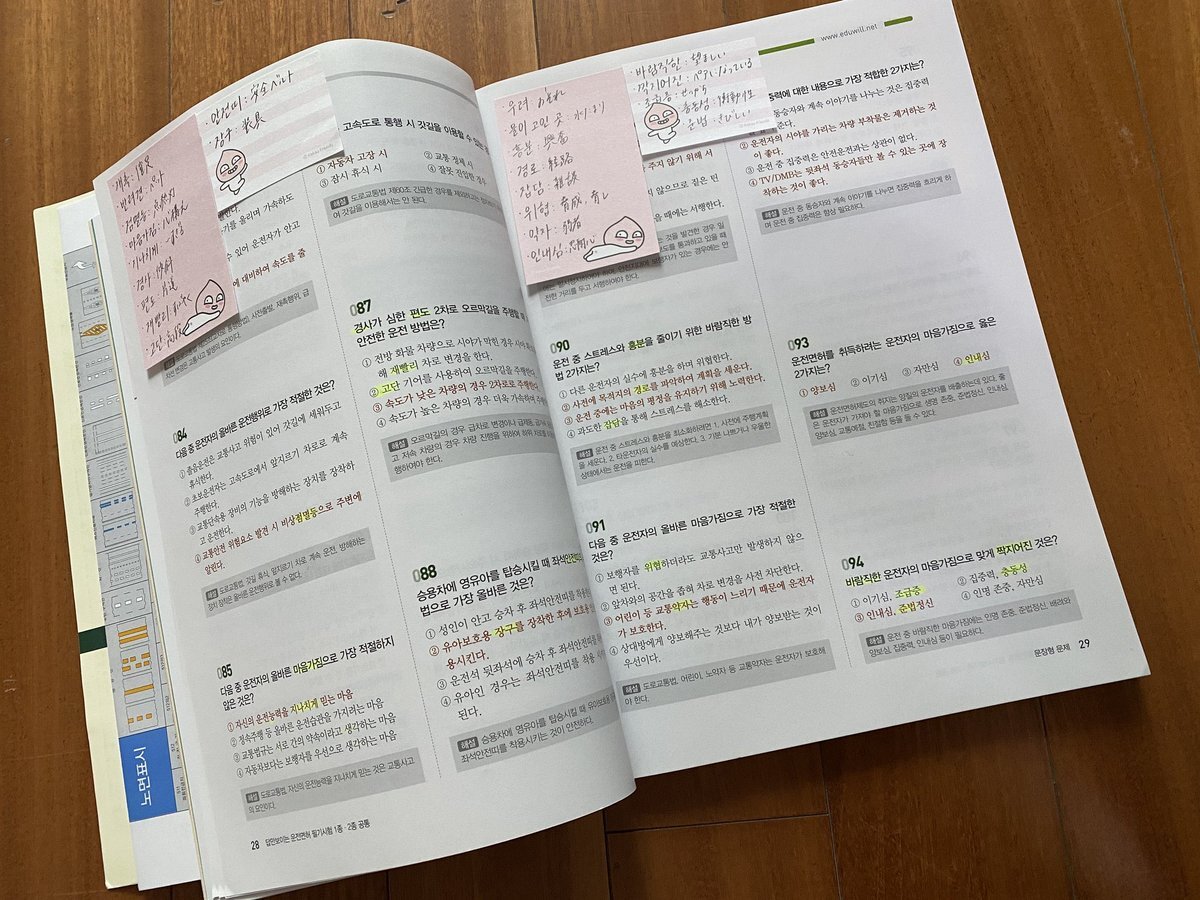 안전띠 : 安全ベルト
장구 : 装具
고속도로 통행 시 갓길을 이용할 수 있는
① 자동차 고장 시
② 교통 정체 시
③ 잠시 휴식 시
④ 잘못 진입한 경우
해설 도로교통법 제60조, 긴급한 경우를 제외하고는
여 갓길을 이용해서는 안 된다.
084
다음 중 운전자의 올바른 운전행위로 가장 적절한 것은?
① 졸음운전은 교통사고 위험이 있어 갓길에 세워두고
휴식한다.
② 초보운전자는 고속도로에서 앞지르기 차로로 계속
주행한다.
③ 교통단속용 장비의 기능을 방해하는 장치를 장착하
고 운전한다.
④ 교통안전 위험요소 발견 시 비상점멸등으로 주변에
알린다.
해설 도로교통법, 갓길 휴식, 앞지르기 차로 계속 운전, 방해하는
장치 장착은 올바른 운전행위로 볼 수 없다.
085
다음 중 운전자의 올바른 마음가짐으로 가장 적절하지
않은 것은?
① 자신의 운전능력을 지나치게 믿는 마음
② 정속주행 등 올바른 운전습관을 가지려는 마음
③ 교통법규는 서로 간의 약속이라고 생각하는 마음
④ 자동차보다는 보행자를 우선으로 생각하는 마음
해설 도로교통법, 자신의 운전능력을 지나치게 믿는 것은 교통사고
의 요인이다.
087
경사가 심한 편도 2차로 오르막길을 주행할 때
안전한 운전 방법은?
① 전방 화물 차량으로 시야가 막힌 경우 시야
해 재빨리 차로 변경을 한다.
② 고단 기어를 사용하여 오르막길을 주행한다.
③ 속도가 낮은 차량의 경우 2차로로 주행한다.
④ 속도가 높은 차량의 경우 더욱 가속하며 주행
해설 오르막길의 경우 급차로 변경이나
고 저속 차량의 경우 차량 진행을 위하여 하위 차로를
행하여야 한다.
088
승용차에 영유아를 탑승시킬 때 좌석안전띠
법으로 가장 올바른 것은?
① 성인이 안고 승차 후 좌석안전띠를 착용
② 유아보호용 장구를 장착한 후에
용시킨다.
③ 운전석 뒷좌석에 승차 후 좌석안전띠를
④ 유아인 경우는 좌석안전띠를 착용
된다.
해설 승용차에 영유아를 탑승시킬 때 유아보호용
좌석안전띠를 착용시키는 것이 안전하다.
28 답만보이는 운전면허 필기시험 1종 · 2종 공통
노면표시
www.eduwill.net
우려 : 恐れ
물이 고인 곳 : 水たまり
흥분 : 興奮
경로 : 経路
잡담 : 雑談
약자 : 弱者
바람직한 : 望ましい
090
운전 중 스트레스와 흥분을 줄이기 위한 바람직한 방
법 2가지는?
① 다른 운전자의 실수에 흥분을 하며 위협한다.
② 사전에 목적지의 경로를 파악하여 계획을 세운다.
③ 운전 중에는 마음의 평정을 유지하기 위해 노력한다.
④ 과도한 잡담을 통해 스트레스를 해소한다.
해설 운전 중 스트레스와 흥분을 최소화하려면 1. 사전에 주행계획
을 세운다. 2. 타운전자의 실수를 예상한다. 3. 기분 나쁘거나 우울한
상태에서는 운전을 피한다.
091
다음 중 운전자의 올바른 마음가짐으로 가장 적절한
것은?
① 보행자를 위협하더라도 교통사고만 발생하지 않으
면 된다.
② 앞차와의 공간을 좁혀 차로 변경을 사전 차단한다.
③ 어린이 등 교통약자는 행동이 느리기 때문에 운전자
가 보호한다.
④ 상대방에게 양보해주는 것보다 내가 양보받는 것이
우선이다.
해설 도로교통법, 어린이, 노약자 등 교통약자는 운전자가 보호해
야 한다.
중력에 대한 내용으로 가장 적합한 2가지는?
동승자와 계속 이야기를 나누는 것은 집중력
② 운전자의 시야를 가리는 차량 부착물은 제거하는 것
이 좋다.
③ 운전 중 집중력은 안전운전과는 상관이 없다.
④ TV/DMB는 뒷좌석 동승자들만 볼 수 있는 곳에 장
착하는 것이 좋다.
해설 운전 중 동승자와 계속 이야기를 나누면 집중력을 흐리게 하
며 운전 중 집중력은 항상 필요하다.
093
운전면허를 취득하려는 운전자의 마음가짐으로 옳은
2가지는?
① 양보심 ② 이기심 ③ 자만심 ④ 인내심
해설 운전면허제도의 취지는 양질의 운전자를 배출하는데 있다. 좋
은 운전자가 가져야 할 마음가짐으로 생명 존중, 준법정신, 인내심,
양보심, 교통예절, 친절함 등을 들 수 있다.
094
바람직한 운전자의 마음가짐으로 맞게 짝지어진 것은?
① 이기심, 조급증
② 집중력, 충동성
③ 인내심, 준법정신
④ 인명 존중, 자만심
해설 운전 중 바람직한 마음가짐에는 인명 존중, 준법정신, 배려와
양보심, 집중력, 인내심 등이 필요하다.
문장형 문제 29